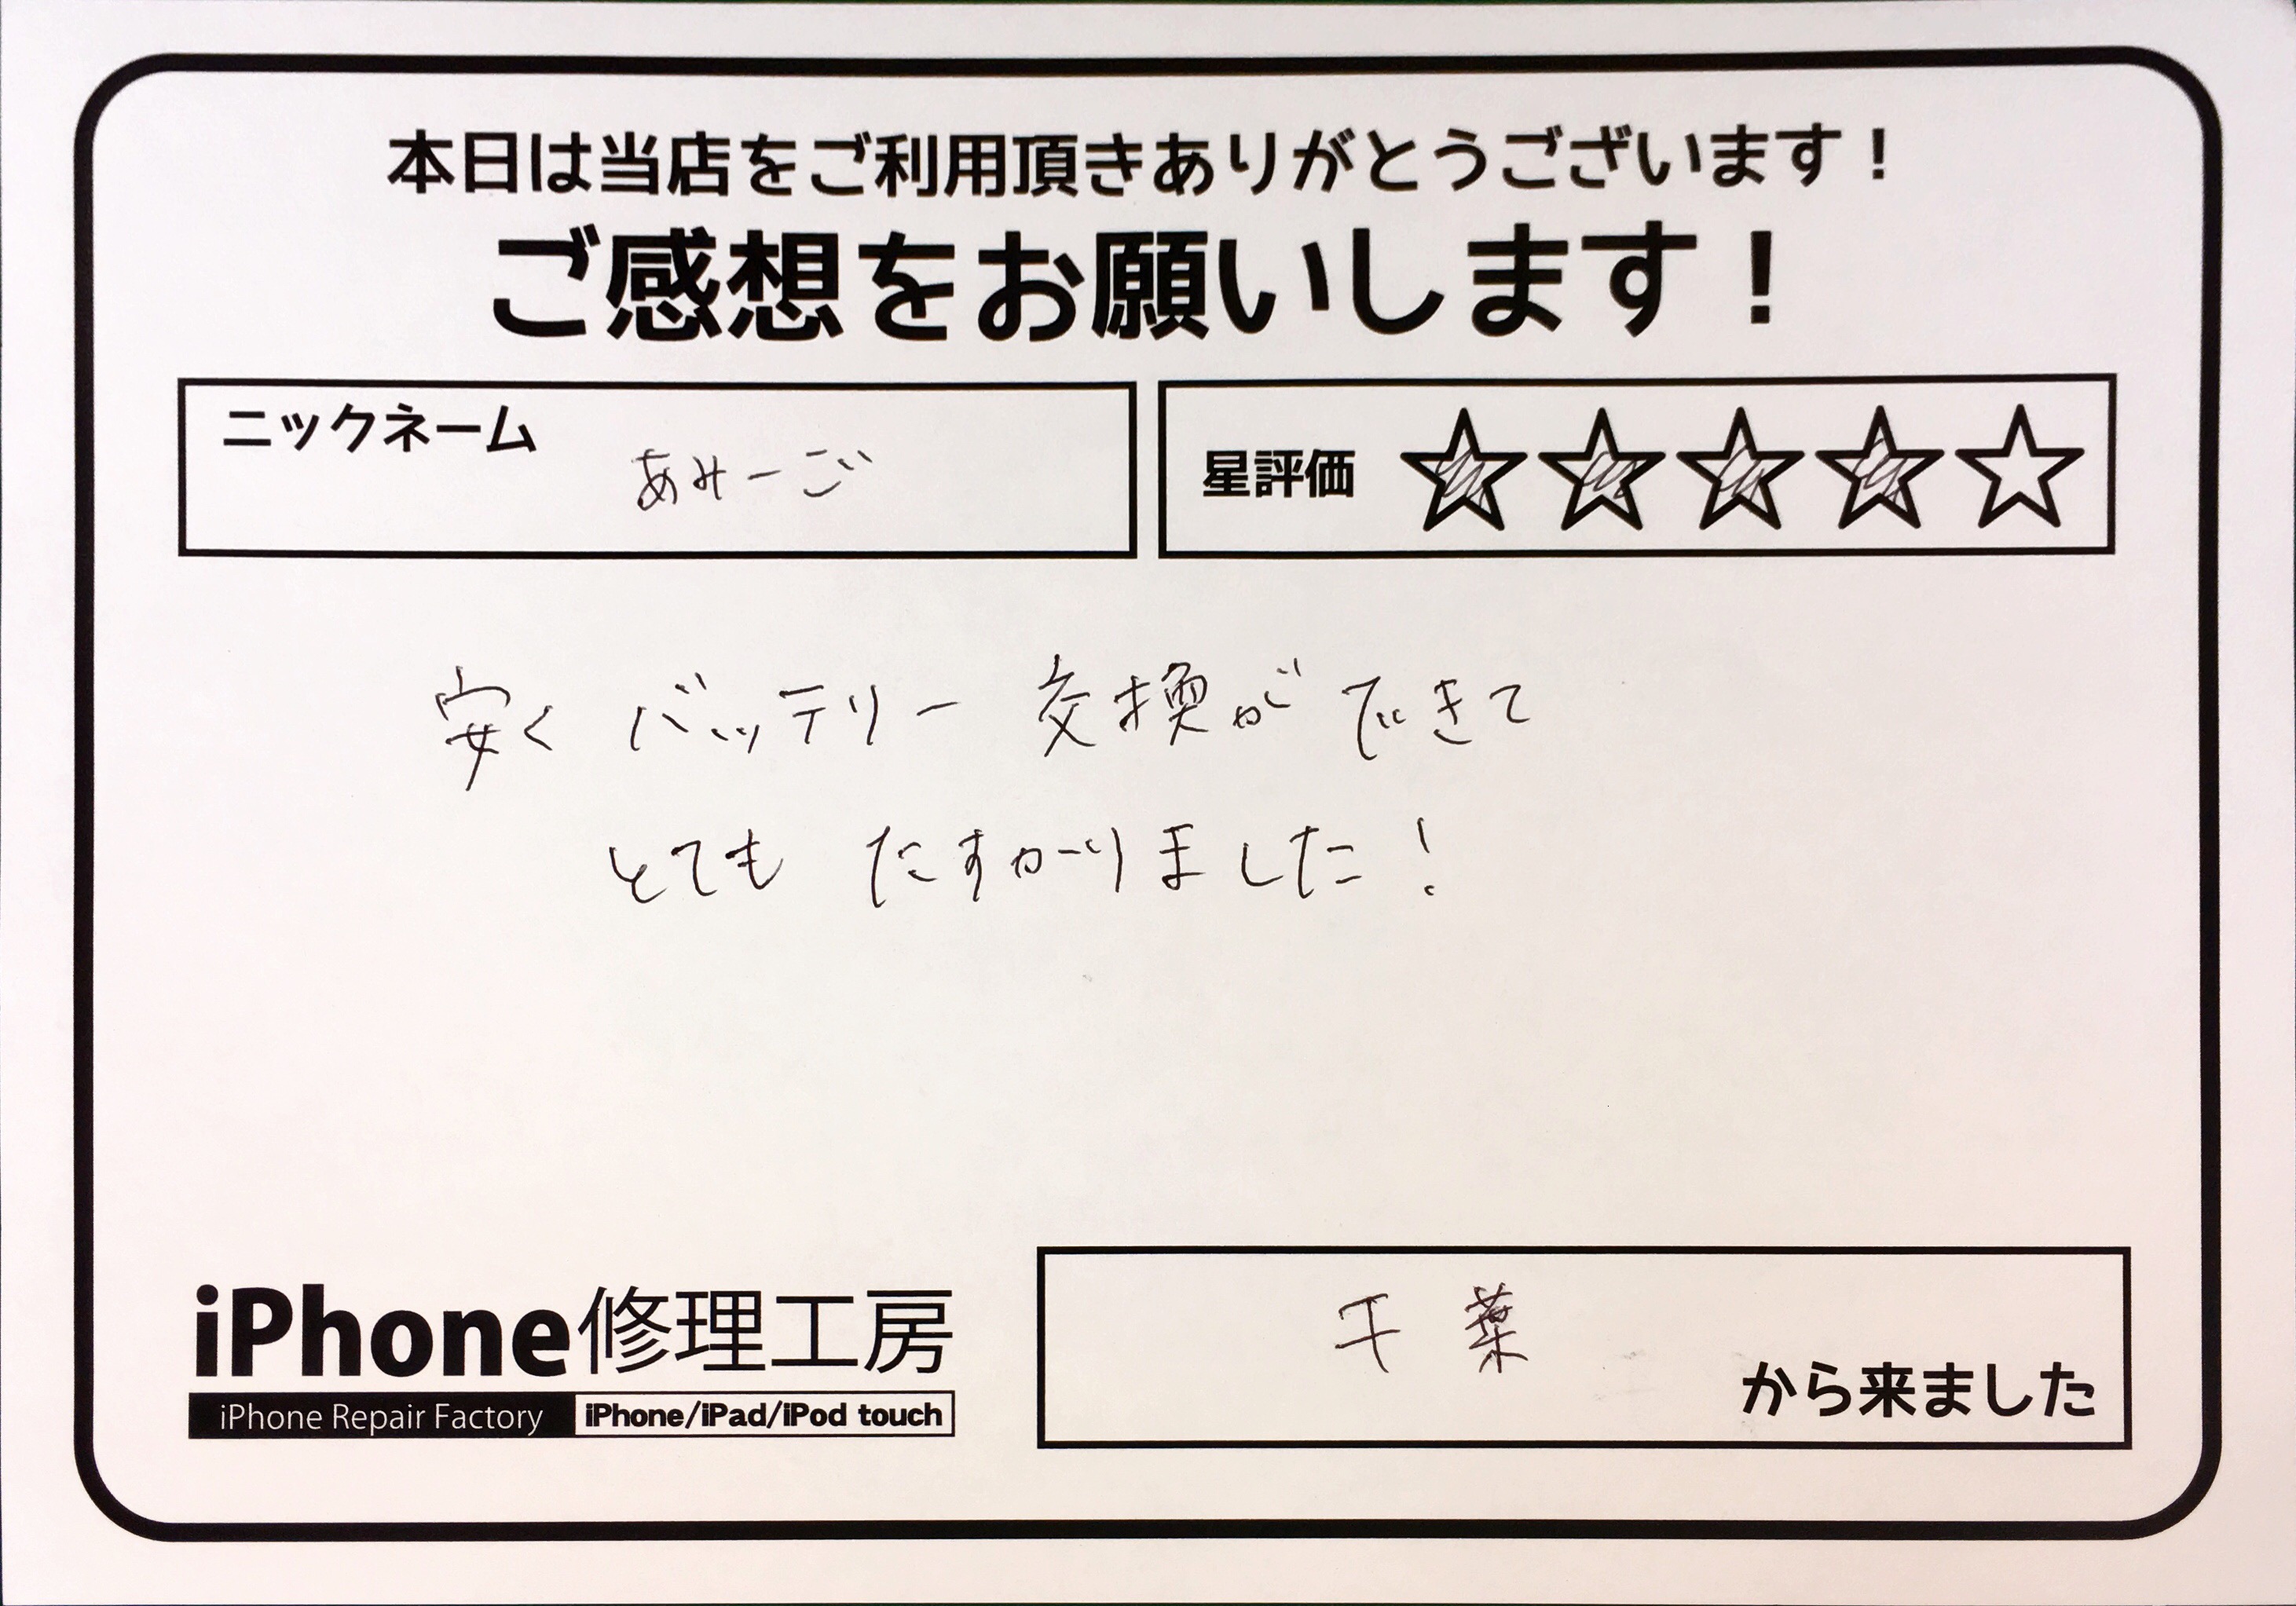 本日は当店をご利用頂きありがとうございます！
ご感想をお願いします！
ニックネーム あみーご
星評価 ★★★★☆
安くバッテリー交換ができて
とてもたすかりました！
千葉
から来ました
iPhone修理工房
iPhone Repair Factory iPhone/iPad/iPod touch